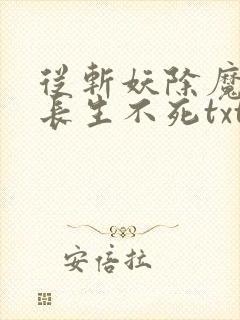 從斬妖除魔
長生不死txt
安倍拉